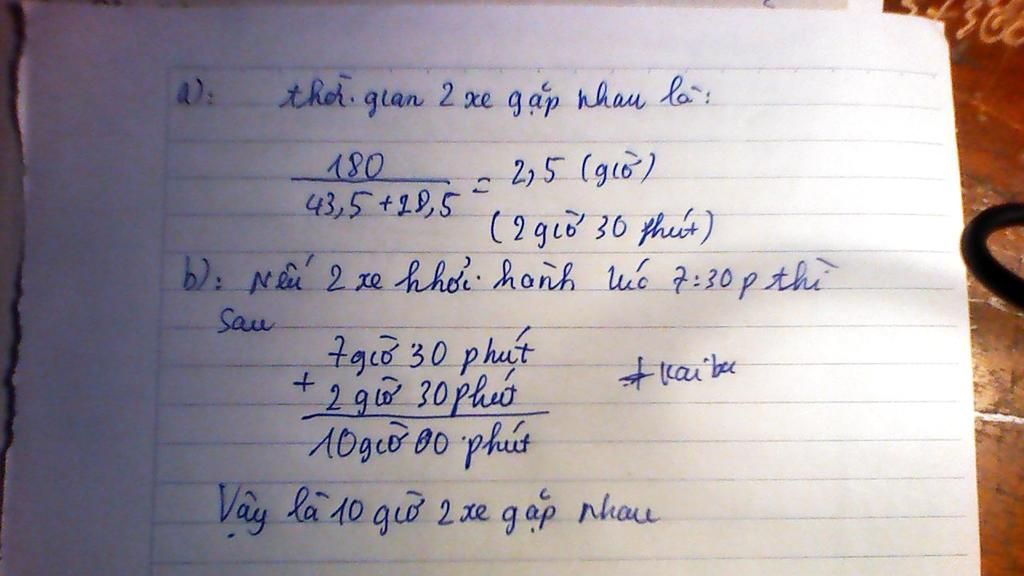 a): thời gian 2 xe gặp nhau là:
180
43,5 + 28,5
= 2,5 (giờ)
(2 giờ 30 phút)
b): Nếu 2 xe khởi hành lúc 7:30p thì
sau
7 giờ 30 phút
+ 2 giờ 30 phút
10 giờ 00 phút
Vậy là 10 giờ 2 xe gặp nhau